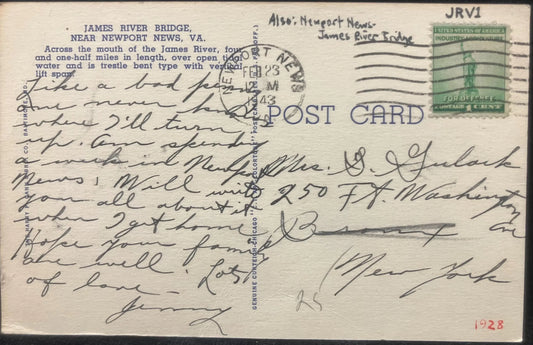 JAMES RIVER BRIDGE,
NEAR NEWPORT NEWS, VA.
Across the mouth of the James River, four
and one-half miles in length, over open tidal
water and is trestle bent type with vertical
lift span.
Like a bad penny
one never knows
where I'll turn
up. Am spending
a week in Newport
News. Will write
you all about it
when I get home.
Hope your family
are well. Lots
of love -
Jenny
Also: Newport News-
James River Bridge
JRV1
NEWPORT NEWS
FEB 23
12 M
1943
UNITED STATES OF AMERICA
INDUSTRY AGRICULTURE
FOR DEFENSE
1 CENT
POST CARD
Mrs. S. Gulack
250 Ft. Washington
Ave
Bronx
New York
25
1928
GENUINE CURTEICH-CHICAGO